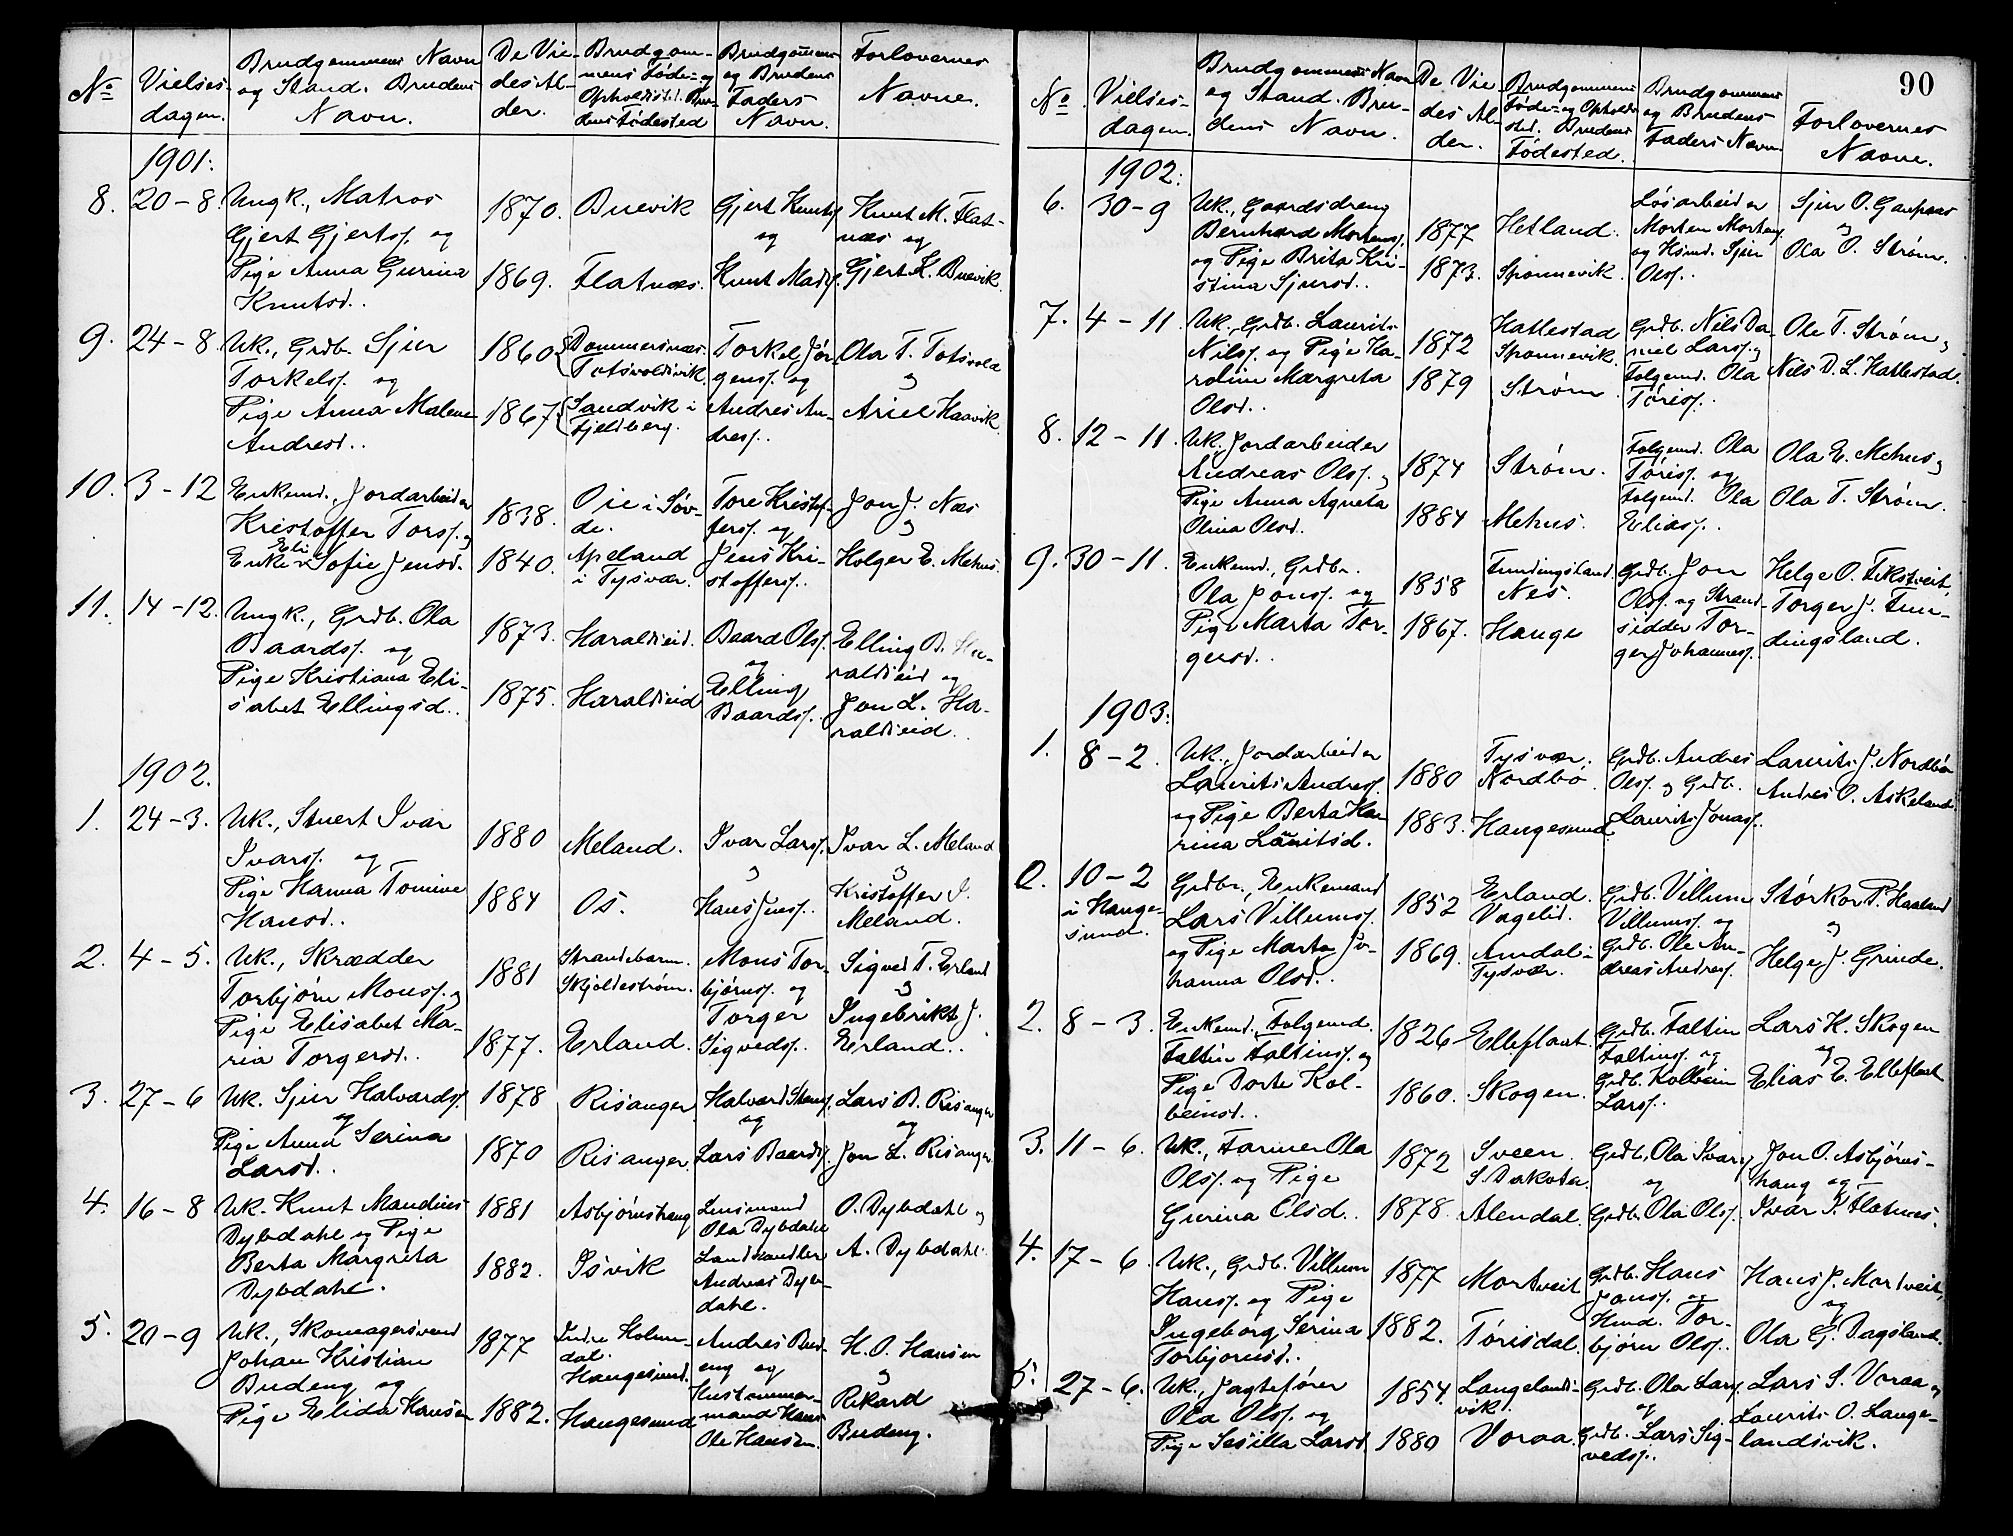 No
Vielses-
dagen.
Brudgommens Navn
og Stand. Brudens
Navn.
De Vie-
des Al-
der.
Brudgom-
mens Føde- og
Opholdsted. Bru-
dens Fødested
Brudgommens
og Brudens
Faders
Navn.
Forlovernes
Navne.
1901:
8. 20-8.
Ungk., Matros
Gjert Gjerts. og
Pige Anna Gurina
Knutsd..
1870.
1869.
Buevik
Flatnæs.
Gjert Knuts.
og
Knut Mads.
Knut M. Flat-
næs og
Gjert K. Buevik.
9. 24-8
Uk., Grdb. Sjur
Torkels. og
Pige Anna Malene
Andresd..
1860
1867
Dommersnæs.
Totsvoldsvik.
Sandvik i
Fjeldberg.
Torkel Jør-
gens. og
Andres An-
dress.
Ola T. Totsvold
og
Ariel Haavik.
10. 3-12
Enkemd., Jordarbeider
Kristoffer Tors. og
Enke Eli Sofie Jensd.
1838.
1840.
Oie i Søv-
de.
Apeland
i Tysvær.
Tore Kristof-
fers. og
Jens Kri-
stoffers..
Jon J. Næs
og
Holger E. Mehus.
11. 14-12.
Ungk., Grdb. Ola
Baards. og
Pige Kristiana Eli-
sabet Ellingsd..
1873.
1875.
Haraldseid.
Haraldseid
Baard Ols.
og
Elling
Baards.
Elling B. Ha-
raldseid og
Jon L. Ha-
raldseid.
1902.
1. 24-3.
Uk., Stuert Ivar
Ivars. og
Pige Hanna Tomine
Hansd..
1880
1884
Meland.
Os.
Ivar Lars.
og
Hans Jens..
Ivar L. Meland
og
Kristoffer I.
Meland.
2. 4-5.
Uk., Skrædder
Torbjørn Mons. og
Pige Elisabet Ma-
ria Torgersd..
1881
1877.
Strandebarm.
Skjoldestrøm.
Erland.
Mons Tor-
bjørns. og
Torger
Sigveds..
Sigved T. Erland
og
Ingebrikt J.
Erland..
3. 27-6
Uk. Sjur Halvards.
og
Pige Anna Serina
Larsd..
1878
1870
Risanger
Risanger
Halvard
og
Lars Baards.
Lars B. Risanger
og
Jon L. Risanger
4. 16-8
Uk. Knut Mandius
Dybdahl og Pige
Berta Margreta
Dybdahl.
1881
1882.
Asbjørnshaug
Isvik
Lensmand
Ola Dybdahl
Landhandler
Andreas Dyb-
dahl.
O. Dybdahl og
A. Dybdahl.
5. 20-9
Uk., Skomagersvend
Johan Kristian
Budeng og
Pige Elida Hansen
1877
1882.
Indre Holmen-
dal.
Haugesund.
Haugesund
Andres Bud-
eng og
Hustømmer-
mand Hans
Ole Hansen.
H. O. Hansen
og
Rikard
Budeng.
90
No
Vielses-
dagen.
Brudgommens Navn
og Stand. Bru-
dens Navn.
De Vie-
des Al-
der.
Brudgommens
Føde- og Opholds-
sted. Brudens
Fødested.
Brudgommens
og Brudens
Faders Navn
Forlovernes
Navne.
1902:
6. 30-9
Uk., Gaardsdreng
Bernhard Mortens.
og Pige Brita Kri-
stina Sjursd..
1877
1873.
Hetland.
Sponnevik.
Løsarbeider
Morten Mortens.
og Hsmd. Sjur
Ols..
Sjur O. Gaupaas
og
Ola O. Strøm.
7. 4-11.
Uk., Grdb. Laurits
Nils. og Pige Ka-
roline Margreta
Olsd..
1872
1879
Hattestad
Sponnevik.
Strøm.
Grdb. Nils Da-
niel Lars. og
Folgemd. Ola
Tøriss..
Ole T. Strøm og
Nils D. L. Hattestad.
8. 12-11.
Uk. Jordarbeider
Andreas Ols. og
Pige Anna Agneta
Olina Olsd.
1874
1884
Strøm.
Mehus.
Folgemd. Ola
Tøriss. og
Folgemd. Ola
Elias..
Ola E. Mehus og
Ola T. Strøm.
9. 30-11.
Enkemd., Grdb.
Ola Jons. og
Pige Marta Tor-
gersd..
1858
1867.
Fundingsland
Nes.
Hauge
Grdb. Jon
Ols. og Strand-
sidder Tor-
ger Johanness.
Helge O. Fikstveit,
Torger J. Fun-
dingsland.
1903:
1. 8-2.
Uk., Jordarbeider
Laurits Andress.
og Pige Berta Ka-
rina Lauritsd.
1880
1883.
Tysvær.
Nordbø.
Haugesund.
Grdb. Andres
Ols. og Grdb.
Laurits Jonas.
Laurits J. Nordbø
Andres O. Askeland
2. 10-2
i Hauge-
sund.
Grdbr., Enkemand
Lars Villums.
og Pige Marta Jo-
hanna Olsd..
1852
1869.
Erland.
Vagelid.
Amdal i
Tysvær.
Grdb. Villum
Villums. og
Grdb. Ole An-
dreas Andreas.
Størkor P. Haaland
og
Helge J. Grinde.
2. 8-3.
Enkemd. Folgemd.
Faltin Faltins. og
Pige Dorte Kol-
beinsd..
1826
1860.
Elleflaat.
Skogen.
Grdb. Faltin
Faltins. og
Grdb. Kolbein
Lars..
Lars K. Skogen
og
Elias E. Elleflaat
3. 11-6.
Uk., Farmer Ola
Ols. og Pige
Gurina Olsd.
1872
1878.
Sveen.
S. Dakota.
Alendal.
Grdb. Ola Ivars.
og
Grdb. Ola Ols.
Jon O. Asbjørns-
haug og
Ivar I. Flatnes.
4. 17-6
Uk., Grdb. Villum
Hans. og Pige
Ingeborg Serina
Torbjørnsd..
1877
1882.
Mortveit
Tørisdal.
Grdb. Hans
Jons. og
Hmd. Tor-
bjørn Ols..
Hans J. Mortveit,
og
Ola G. Dagsland.
5. 27-6.
Uk., Jagtefører
Ola Ols. og
Pige Sesilla Larsd.
1854
1880
Langelands-
vik.
Voraa.
Grdb. Ola Lars.
og
Grdb. Lars Sig-
veds..
Lars S. Voraa og
Laurits O. Lange-
landsvik.